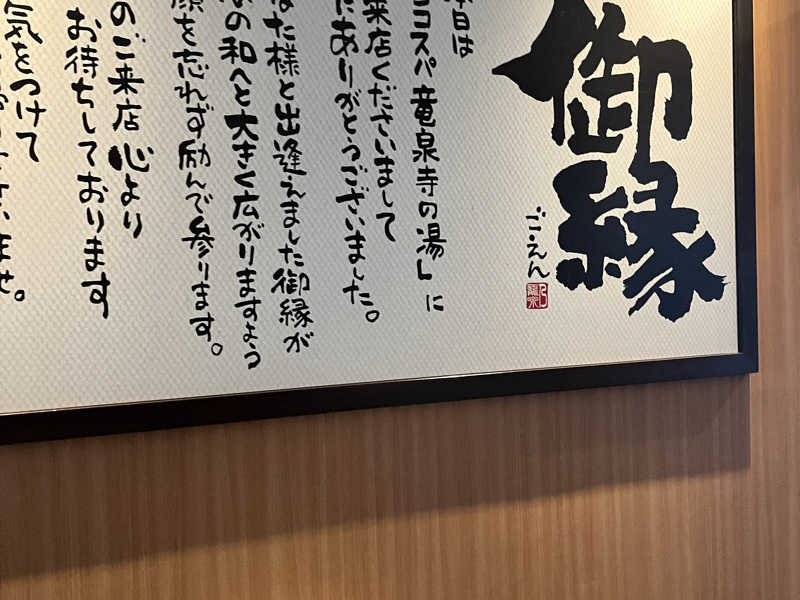 御縁
ご・えん
本日は
ココスパ竜泉寺の湯」に
来店くださいまして
ありがとうございました。
た様と出逢えました御縁が
の和へと大きく広がりますよう
を忘れず励んで参ります。
のご来店心より
お待ちしております
気をつけて
ませ。